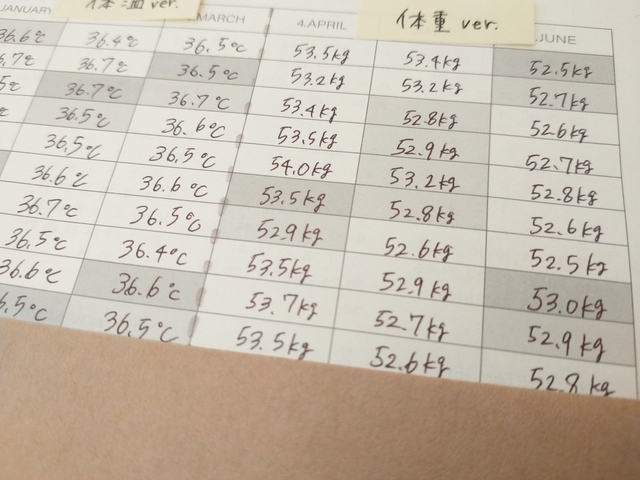 体温 ver.
体重 ver.
JANUARY MARCH 4.APRIL JUNE
36.6℃ 36.4℃ 36.5℃ 53.5kg 53.4kg 52.5kg
6.7℃ 36.7℃ 36.5℃ 53.2kg 53.2kg 52.7kg
5℃ 36.7℃ 36.7℃ 53.4kg 52.8kg 52.6kg
36.5℃ 36.6℃ 53.5kg 52.9kg 52.7kg
36.5℃ 36.5℃ 54.0kg 53.2kg 52.8kg
36.6℃ 36.6℃ 53.5kg 52.8kg 52.6kg
36.7℃ 36.5℃ 52.9kg 52.6kg 52.5kg
36.5℃ 36.4℃ 53.5kg 52.9kg 53.0kg
36.6℃ 36.6℃ 53.7kg 52.7kg 52.9kg
6.5℃ 36.5℃ 53.5kg 52.6kg 52.8kg